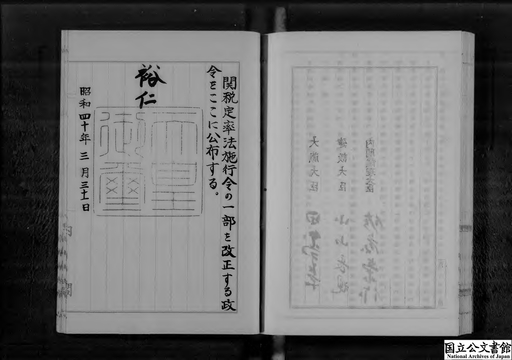 関税定率法施行令の一部を改正する政
令をここに公布する。
裕仁
天皇
御璽
昭和四十年三月三十一日
内閣総理大臣
建設大臣
大蔵大臣
国立公文書館
National Archives of Japan